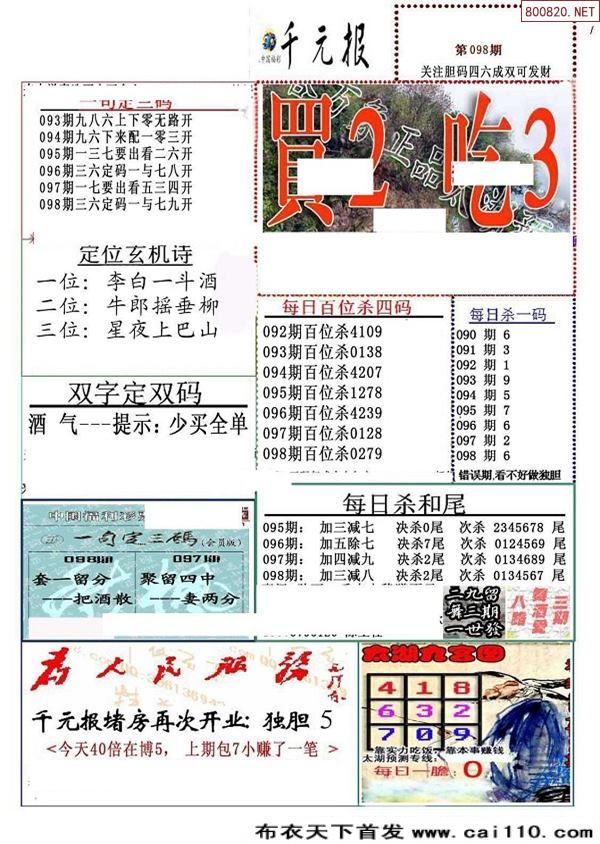 800820.NET
千元报
第098期
关注胆码四六成双可发财
一句定三码
093期九八六上下零无路开
094期九六下来配一零三开
095期一三七要出看二六开
096期三六定码一与七八开
097期一七要出看五三四开
098期三六定码一与七九开
買2 吃3
定位玄机诗
一位：李白一斗酒
二位：牛郎摇垂柳
三位：星夜上巴山
每日百位杀四码
092期百位杀4109
093期百位杀0138
094期百位杀4207
095期百位杀1278
096期百位杀4239
097期百位杀0128
098期百位杀0279
每日杀一码
090 期 6
091 期 3
092 期 1
093 期 9
094 期 5
095 期 7
096 期 6
097 期 2
098 期 6
错误期,看不好做独胆
双字定双码
酒 气---提示：少买全单
中国福利彩
一句定三碼(会员版)
098期 097期
套一留分 聚留四中
一把酒散 一妻两分
每日杀和尾
095期： 加三减七 决杀0尾 次杀 2345678 尾
096期： 加五除七 决杀7尾 次杀 0124569 尾
097期： 加四减九 决杀2尾 次杀 0134689 尾
098期： 加三减八 决杀2尾 次杀 0134567 尾
二九留
舞三期
一世發
三期
舞酒愛
八路
為人民服務
千元报堵房再次开业：独胆 5
<今天40倍在博5， 上期包7小赚了一笔 >
太湖九宫图
4 1 8
6 3 2
7 0 9
靠实力吃饭，靠本事赚钱
太湖预测专线：
每日一膽： 0
布衣天下首发 www.cai110.com